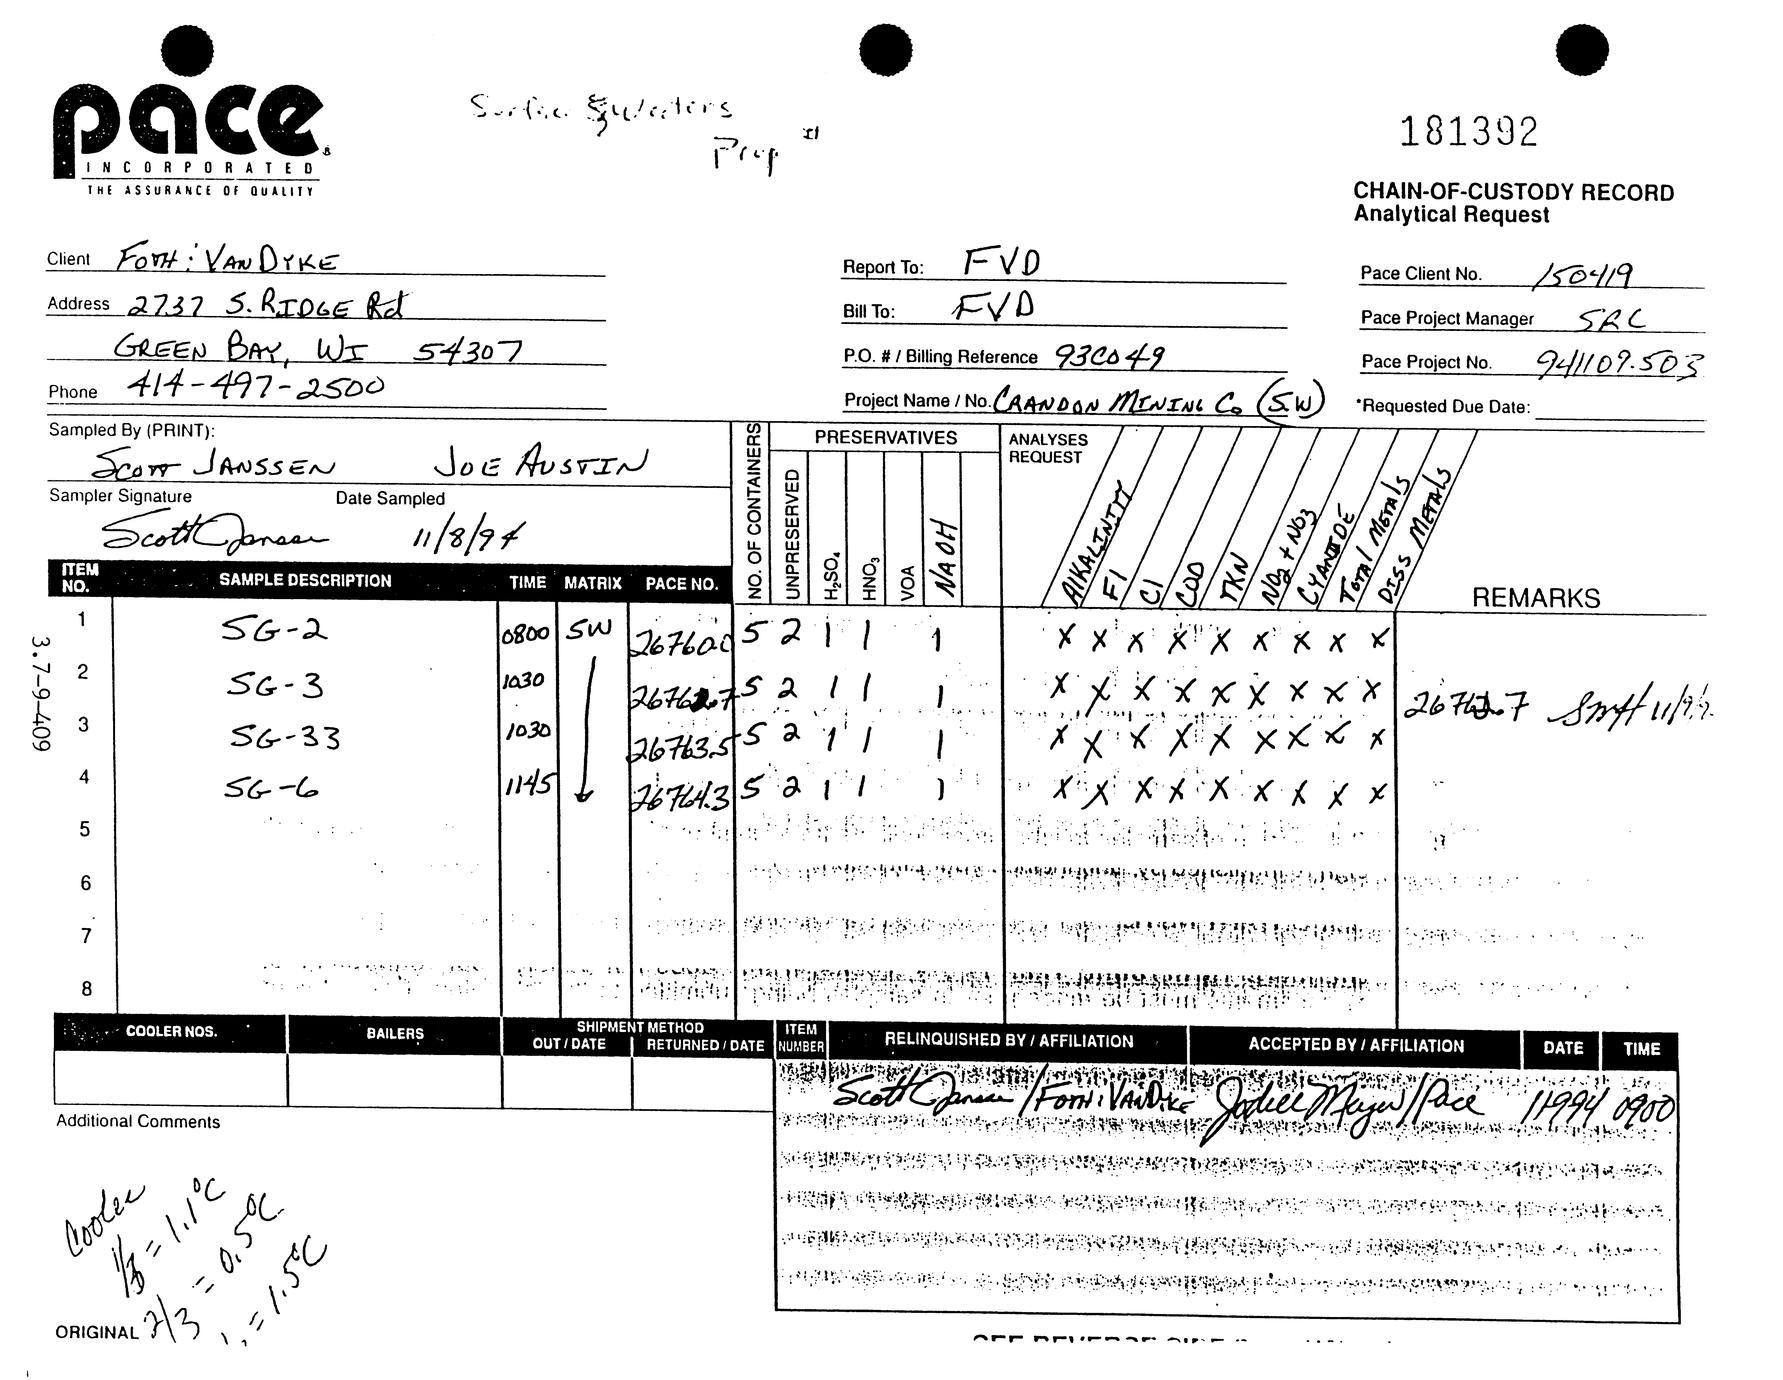 pace
INCORPORATED
THE ASSURANCE OF QUALITY
181392
CHAIN-OF-CUSTODY RECORD
Analytical Request
Client FOTH : VANDYKE
Address 2737 S. RIDGE Rd
GREEN BAY, WI 54307
Phone 414-497-2500
Report To: FVD
Bill To: FVD
P.O. # / Billing Reference 93C049
Project Name / No. CRANDON MINING Co (SW)
Pace Client No. 150419
Pace Project Manager SRC
Pace Project No. 941109.503
*Requested Due Date:
Sampled By (PRINT):
SCOTT JANSSEN JOE AUSTIN
Sampler Signature Date Sampled
Scott Janssen 11/8/94
ITEM NO. SAMPLE DESCRIPTION TIME MATRIX PACE NO. NO. OF CONTAINERS PRESERVATIVES UNPRESERVED H2SO4 HNO3 VOA NAOH
ANALYSES REQUEST ALKALINITY Fl Cl COD TKN NO2 + NO3 CYANIDE TOTAL METALS DISS METALS REMARKS
1 SG-2 0800 SW 26760.0 5 2 1 1 1 X X X X X X X X X
2 SG-3 1030 5 2 1 1 1 X X X X X X X X X 11/9/
3 SG-33 1030 26763.5 5 2 1 1 1 X X X X X X X X X
4 SG-6 1145 26764.3 5 2 1 1 1 X X X X X X X X X
5
6
7
8
3.7-9-409
COOLER NOS. BAILERS SHIPMENT METHOD OUT / DATE RETURNED / DATE ITEM NUMBER RELINQUISHED BY / AFFILIATION ACCEPTED BY / AFFILIATION DATE TIME
Scott Janssen / FOTH : VANDYKE Jodiee Meyer / Pace 11-9-94 0900
Additional Comments
Cooler
1/3 = 1.1°C
2/3 = 0.5°C
= 1.5°C
ORIGINAL